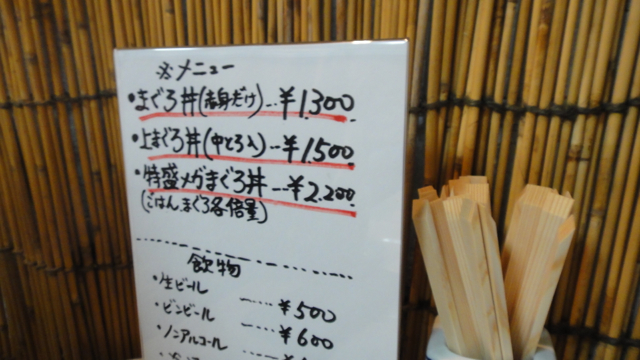 ※メニュー
・まぐろ丼(赤身だけ)…¥1.300.
・上まぐろ丼(中とろ入)…¥1.500.
・特盛メガまぐろ丼…¥2.200.
(ごはん、まぐろ各倍量)
飲物
・生ビール …… ¥500
・ビンビール …… ¥600
・ノンアルコール ……